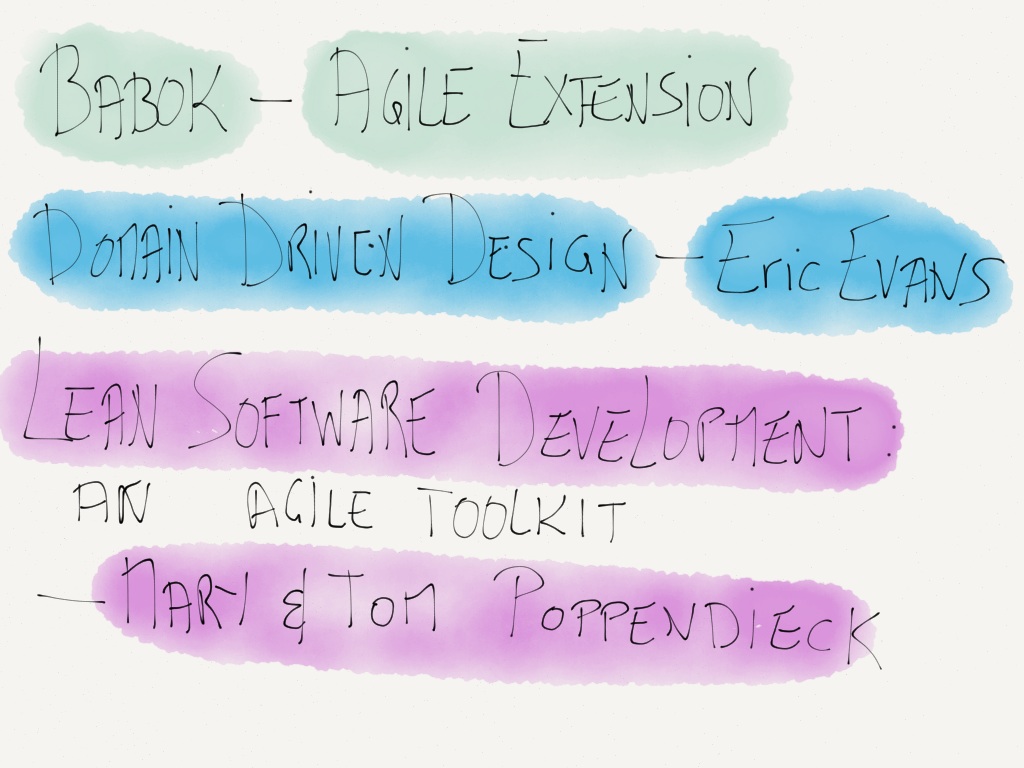 BABOK — AGiLE EXTENSiON
DOMAIN DRIVEN DESiGN — Eric EVANS
LEAN SOFTWARE DEVELOPMENT :
AN AGiLE TOOLKIT
— MARY & TOM POPPENDiECK